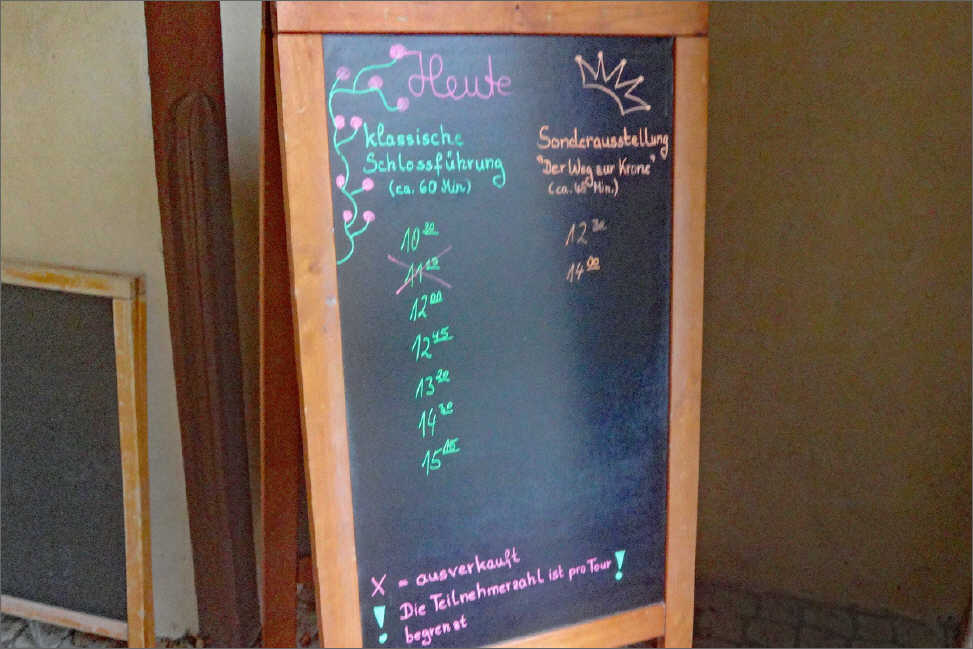 Heute
klassische
Schlossführung
(ca. 60 Min)
10 30
11 15
12 00
12 45
13 30
14 30
15 15
Sonderausstellung
"Der Weg zur Krone"
(ca. 45 Min.)
12 30
14 00
X = ausverkauft
! Die Teilnehmerzahl ist pro Tour !
begrenzt